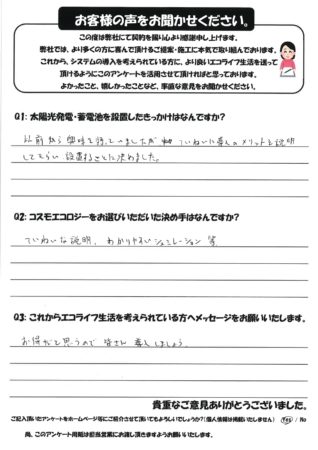 お客様の声をお聞かせください。
この度は弊社にて契約を賜り心より感謝申し上げます。
弊社では、より多くの方に喜んで頂けるご提案・施工に本気で取り組んでおります。
これから、システムの導入を考えられている方に、より良いエコライフ生活を送って
頂けるようにこのアンケートを活用させて頂ければと思っております。
よかったこと、嬉しかったことなど、率直な意見をお聞かせください。
Q1: 太陽光発電・蓄電池を設置したきっかけはなんですか?
以前から興味を持っていましたが ていねいに導入のメリットを説明
してもらい 設置することに決めました。
Q2: コスモエコロジーをお選びいただいた決め手はなんですか?
ていねいな説明、わかりやすいシュミレーション 等
Q3: これからエコライフ生活を考えられている方へメッセージをお願いいたします。
お得だと思うので 皆さん 導入しましょう。
貴重なご意見ありがとうございました。
ご記入頂いたアンケートをホームページ等にご紹介させて頂いてもよろしいでしょうか?(個人情報は掲載いたしません) Yes / No
尚、このアンケート用紙は担当営業にお渡し頂きますようお願いいたします。